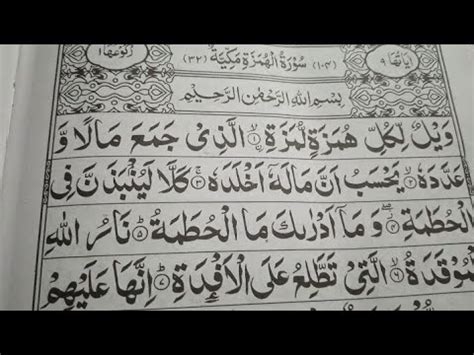 اٰيَاتُهَا ٩ (١٠٤) سُوْرَةُ الْهُمَزَةِ مَكِّيَّةٌ (٣٢) رُكُوْعُهَا ١
بِسْمِ اللّٰهِ الرَّحْمٰنِ الرَّحِيْمِ
وَيْلٌ لِّكُلِّ هُمَزَةٍ لُّمَزَةِ ۙ﴿١﴾ الَّذِیْ جَمَعَ مَالًا وَّ
عَدَّدَهٗ ۙ﴿٢﴾ يَحْسَبُ اَنَّ مَالَهٗۤ اَخْلَدَهٗ ۚ﴿٣﴾ كَلَّا لَيُنْۢبَذَنَّ فِی
الْحُطَمَةِ ۖ﴿٤﴾ وَمَاۤ اَدْرٰىكَ مَا الْحُطَمَةُ ؕ﴿٥﴾ نَارُ اللّٰهِ
الْمُوْقَدَةُ ۙ﴿٦﴾ الَّتِیْ تَطَّلِعُ عَلَی الْاَفْـِٕدَةِ ؕ﴿٧﴾ اِنَّهَا عَلَيْهِمْ